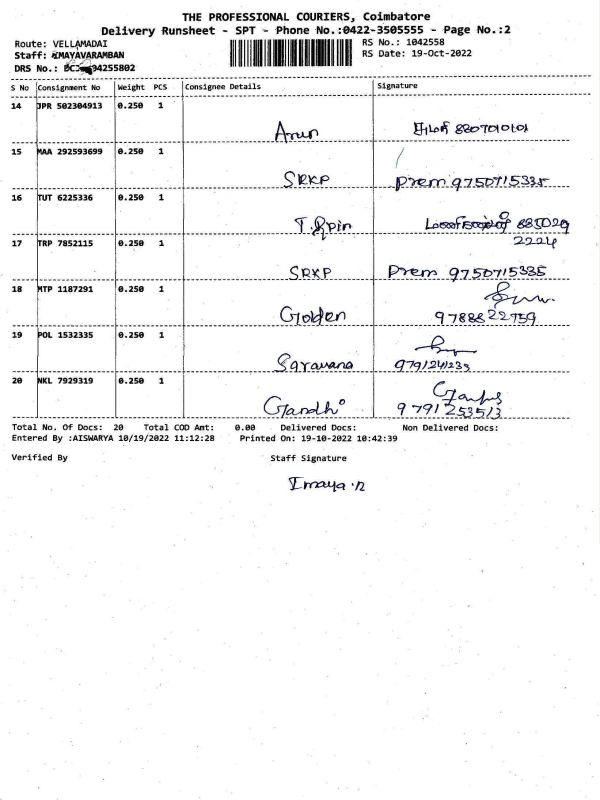 THE PROFESSIONAL COURIERS, Coimbatore
Delivery Runsheet - SPT - Phone No.:0422-3505555 - Page No.:2
Route: VELLAMADAI
RS No.: 1042558
Staff: IMAYAVARAMBAN
RS Date: 19-Oct-2022
DRS No.: 94255802
S No Consignment No Weight PCS Consignee Details Signature
14 JPR 502304913 0.250 1
Arun 8807010101
15 MAA 292593699 0.250 1
SRKP Prem 9750715335
16 TUT 6225336 0.250 1
885029
17 TRP 7852115 0.250 1 2224
SRKP Prem 9750715335
18 MTP 1187291 0.250 1
Golden 9788822759
19 POL 1532335 0.250 1
Saravana 9791241233
20 NKL 7929319 0.250 1
Gandhi 9791253513
Total No. Of Docs: 20 Total COD Amt: 0.00 Delivered Docs: Non Delivered Docs:
Entered By :AISWARYA 10/19/2022 11:12:28 Printed On: 19-10-2022 10:42:39
Verified By Staff Signature
Imaya.n